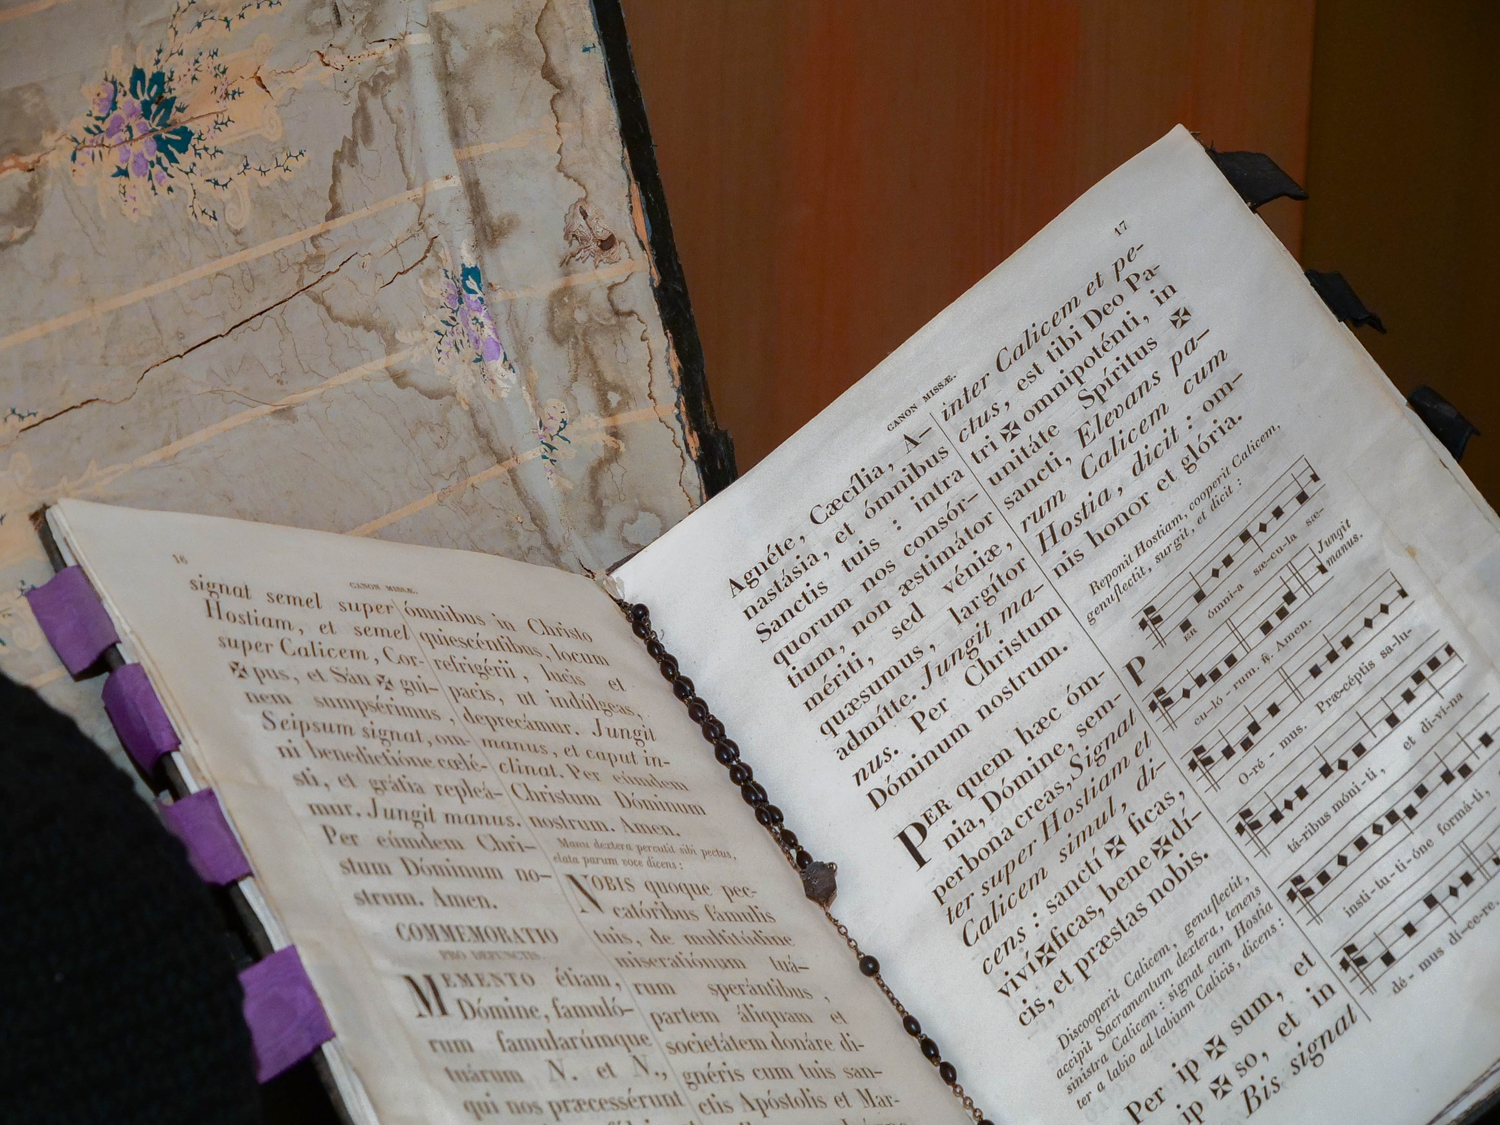 16
CANON MISSÆ.
signat semel super
Hostiam, et semel
super Calicem, Cor-
✠ pus, et Sán ✠ gui-
nem sumpsérimus,
Seipsum signat, om-
ni benedictióne cœlé-
sti, et grátia repleá-
mur. Jungit manus.
Per eúmdem Chri-
stum Dóminum no-
strum. Amen.
COMMEMORATIO
PRO DEFUNCTIS.
MEMENTO étiam,
Dómine, famuló-
rum famularúmque
tuárum N. et N.,
qui nos præcessérunt
ómnibus in Christo
quiescéntibus, locum
refrigérii, lucis et
pacis, ut indúlgeas,
deprecámur. Jungit
manus, et caput in-
clinat. Per eúmdem
Christum Dóminum
nostrum. Amen.
Manu dextera percutit sibi pectus,
elata parum voce dicens:
NOBIS quoque pec-
catóribus fámulis
tuis, de multitúdine
miseratiónum tuá-
rum sperántibus,
partem áliquam et
societátem donáre di-
gnéris cum tuis san-
ctis Apóstolis et Mar-
CANON MISSÆ.
17
Agnéte, Cæcília, A-
nastásia, et ómnibus
Sanctis tuis : intra
quorum nos consór-
tium, non æstimátor
mériti, sed véniæ,
quæsumus, largítor
admítte. Jungit ma-
nus. Per Christum
Dóminum nostrum.
PER quem hæc óm-
nia, Dómine, sem-
per bona creas, Signat
ter super Hostiam et
Calicem simul, di-
cens : sanctí ✠ ficas,
viví ✠ ficas, bene ✠ dí-
cis, et præstas nobis.
Discooperit Calicem, genuflectit,
accipit Sacramentum dextera, tenens
sinistra Calicem : signat cum Hostia
ter a labio ad labium Calicis, dicens :
Per ip ✠ sum, et
ip ✠ so, et in
Bis signat
inter Calicem et pe-
ctus, est tibi Deo Pa-
tri ✠ omnipoténti, in
unitáte Spíritus ✠
sancti, Elevans pa-
rum Calicem cum
Hostia, dicit : om-
nis honor et glória.
Reponit Hostiam, cooperit Calicem,
genuflectit, surgit, et dicit :
PER ómni-a sæ-cu-la sæ-
cu-ló-rum. ℟. Amen. Jungit
manus.
O-ré-mus. Præ-céptis sa-lu-
tá-ribus móni-ti, et di-ví-na
insti-tu-ti-óne formá-ti,
dé-mus di-ce-re.